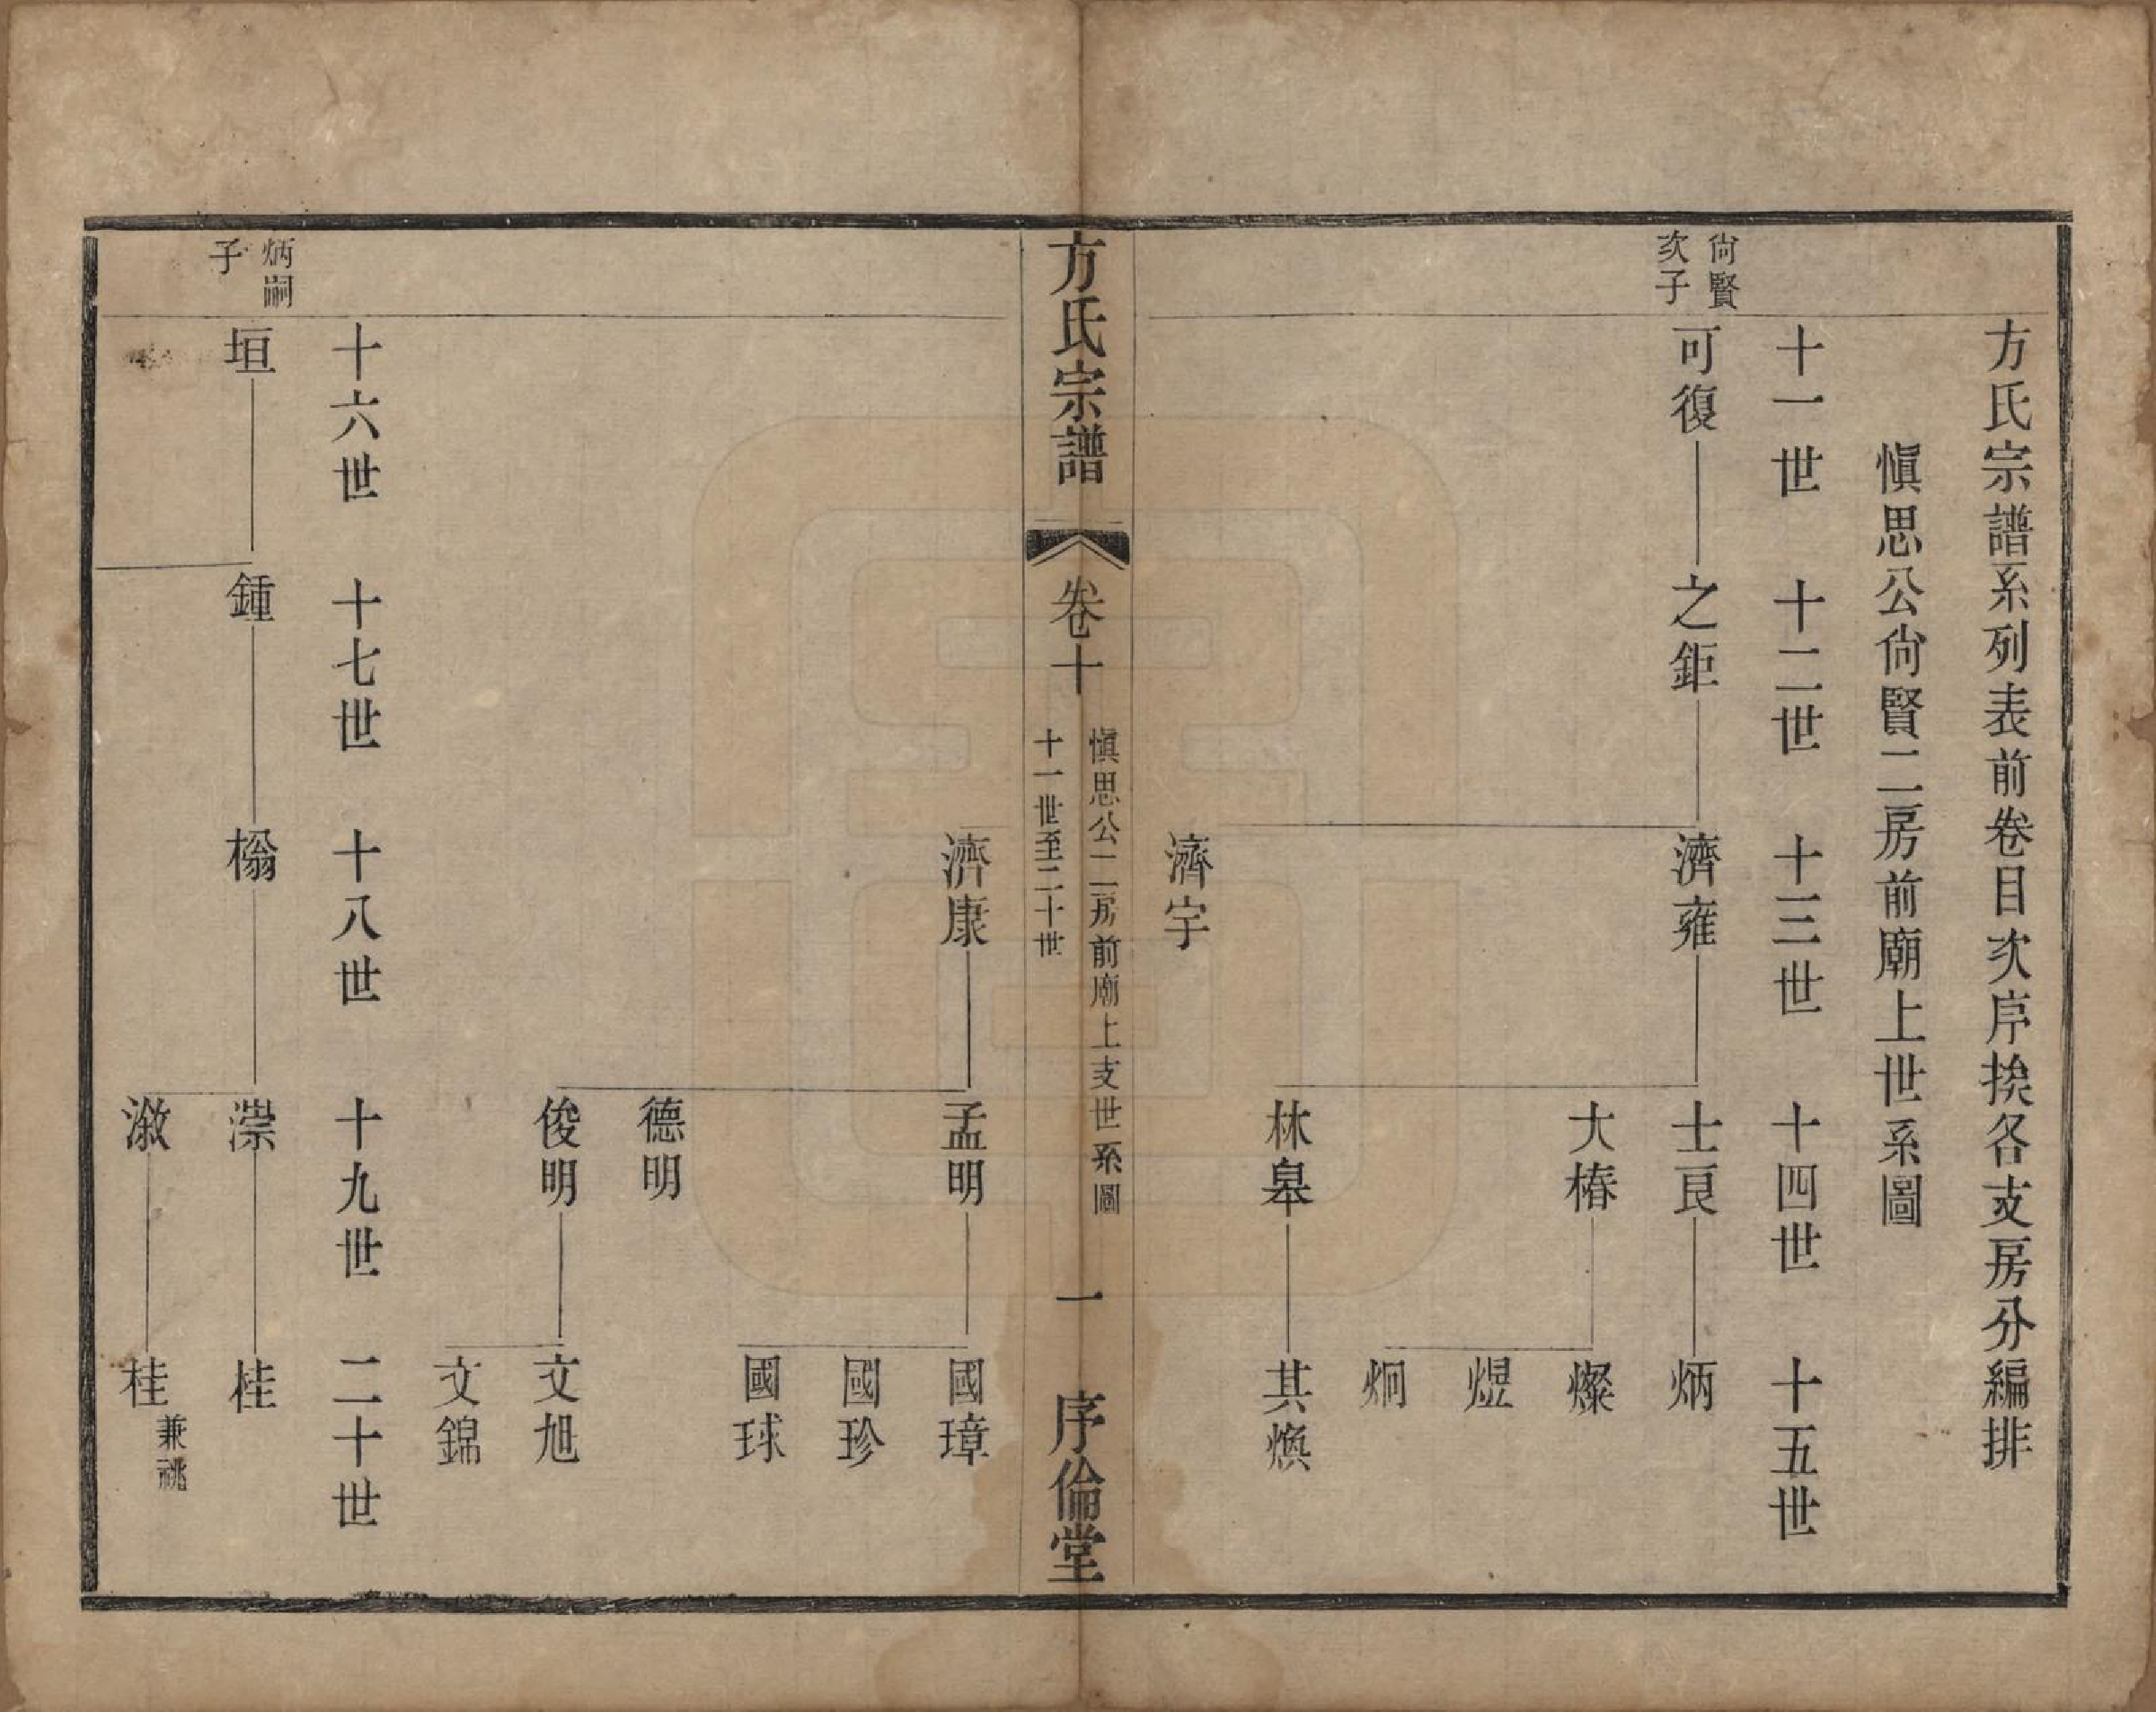 方氏宗譜系列表前卷目次序挨各支房分編排
愼思公尙賢二房前廟上世系圖
十一世 十二世 十三世 十四世 十五世
尙賢
次子
可復 之鉅 濟雍 士良 炳
大椿 燦
煜
炯
林皋 其煥
濟宇
方氏宗譜 卷十
愼思公二房前廟上支世系圖
十一世至二十世
一 序倫堂
濟康 孟明 國璋
國珍
國球
德明
俊明 文旭
文錦
十六世 十七世 十八世 十九世 二十世
炳嗣
子
垣 鍾 榒 漴 桂
漵 桂 兼祧